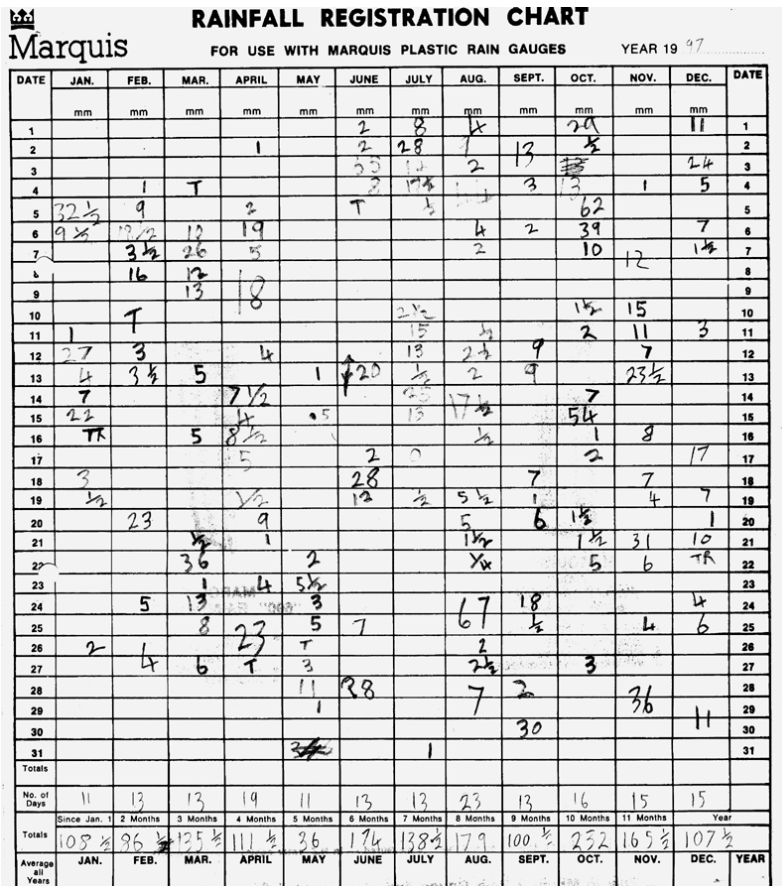 RAINFALL REGISTRATION CHART
Marquis
FOR USE WITH MARQUIS PLASTIC RAIN GAUGES YEAR 1997
DATE JAN. FEB. MAR. APRIL MAY JUNE JULY AUG. SEPT. OCT. NOV. DEC. DATE
mm mm mm mm mm mm mm mm mm mm mm mm
1 2 8 4 29 11 1
2 1 2 28 1 13 ½ 2
3 2 24 3
4 1 T 3 13 1 5 4
5 32½ 9 2 T ½ 62 5
6 9½ 19 4 2 39 7 6
7 3½ 26 5 2 10 12 1½ 7
8 16 12 8
9 13 18 9
10 T 2½ 1½ 15 10
11 1 15 ½ 2 11 3 11
12 27 3 4 13 2½ 9 7 12
13 4 3½ 5 1 20 ½ 2 9 23½ 13
14 7 7 1/2 17½ 7 14
15 22 4 .5 13 54 15
16 TR 5 8½ ½ 1 8 16
17 5 2 0 2 17 17
18 3 28 7 7 18
19 ½ 1/2 12 ½ 5½ 1 4 7 19
20 23 9 5 6 1½ 1 20
21 ½ 1 1½ 1½ 31 10 21
22 36 2 ¼ 5 6 TR 22
23 1 4 5½ 23
24 5 13 3 67 18 4 24
25 8 23 5 7 ½ 4 6 25
26 2 1 T 2 26
27 4 6 T 3 2½ 3 27
28 11 38 7 2 36 28
29 1 11 29
30 30 30
31 1 31
Totals
No. of Days 11 13 13 19 11 13 13 23 13 16 15 15
Since Jan. 1 2 Months 3 Months 4 Months 5 Months 6 Months 7 Months 8 Months 9 Months 10 Months 11 Months Year
Totals 108½ 96½ 135½ 111½ 36 174 138½ 179 100½ 232 165½ 107½
Average all Years JAN. FEB. MAR. APRIL MAY JUNE JULY AUG. SEPT. OCT. NOV. DEC. YEAR